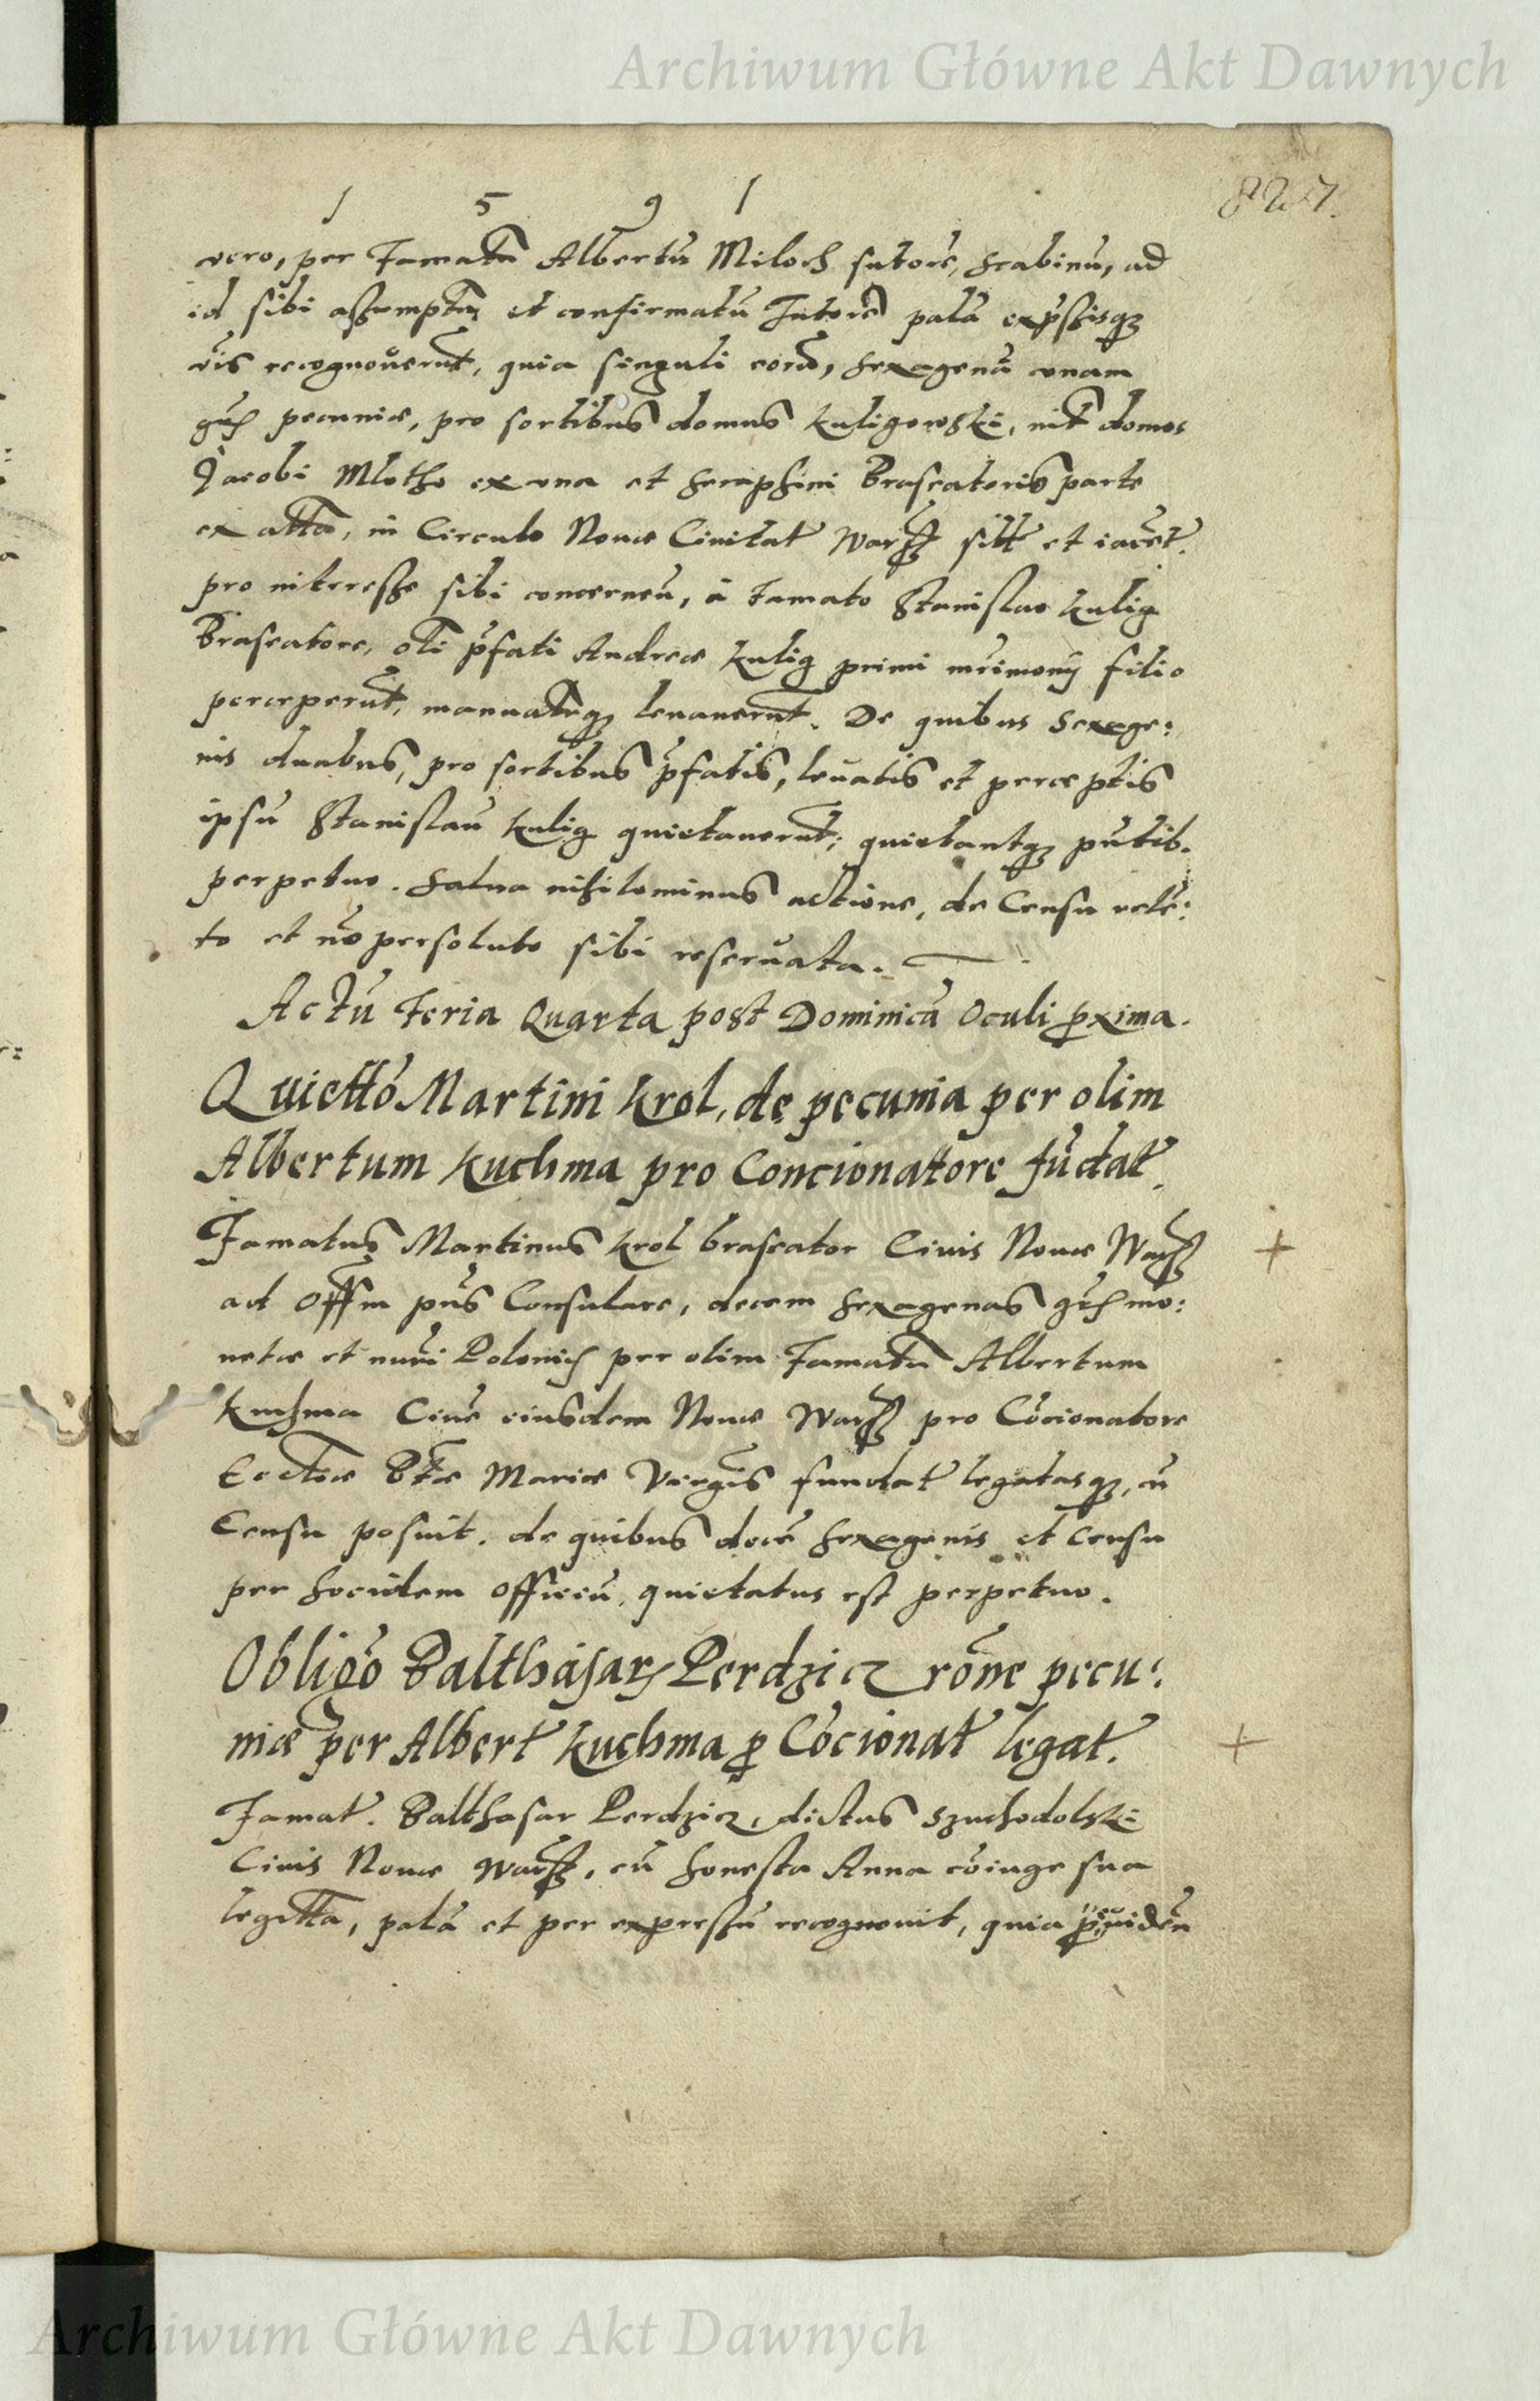 Archiwum Główne Akt Dawnych
1 5 9 1
827.
vero, per Famatũ Albertũ Miloch sutorẽ, Scabinũ, ad
id sibi assumptũ et confirmatũ Tutorẽ palã exp̃ssisq́ꝫ
ṽis recognoverũt, quia singuli eorũ, sexagenã unam
pecuniæ, pro sortibus domus Kuligowski, int̃ domos
Jacobi Mlotho ex una et Seraphini Braseatoris parte
ex alt̃a, in Circulo Novæ Civitat̃ Warß sit̃t et iacẽt̃.
pro interesse sibi concerneñ, à Famato Stanislao Kulig
Braseatore, oli p̃fati Andreæ Kulig primi mr̃imonij filio
perceperũt, manuatrq́ꝫ levaverũt. De quibus Sexage:
nis duabus, pro sortibus p̃fatis, levatis et perceptis
ipsũ Stanislaũ Kulig quietaverũt; quietantqꝫ p̃ntib.
perpetuo. Salva nihilominus actione, de Censu retẽ:
to et nõ persoluto sibi reservata.
Actũ Feria Quarta post Dominicã Oculi ꝓxima.
Quiettõ Martini Krol, de pecunia per olim
Albertum Kuchma pro Concionattore fũdat̃.
Famatus Martinus Krol braseator Civis Novæ Warß
ad Offm̃ p̃ns Consulare, decem sexagenas mo:
netæ et num̃i Polonic̃ per olim Famatũ Albertum
Kuchma Cive eiusdem Novæ Warß pro Cõcionatore
Eccl̃iæ B̃tæ Mariæ Virgĩs fundat̃ legatasqꝫ, cũ
Censu posuit. de quibus decẽ sexagenis et censu
per hocidem officiũ, quietatus est perpetuo.
Obligõ Balthasarꝭ Perdzicz rõne pecu:
niæ per Albert̃ Kuchma ꝓ Cõcionat̃ legat.
Famat̃. Balthasar Perdzicz, dictus Szuchodolski
Civis Novæ Warß, cũ honesta Anna cõiuge sua
legitt̃a, palã et per expressũ recognovit, quia
Archiwum Główne Akt Dawnych